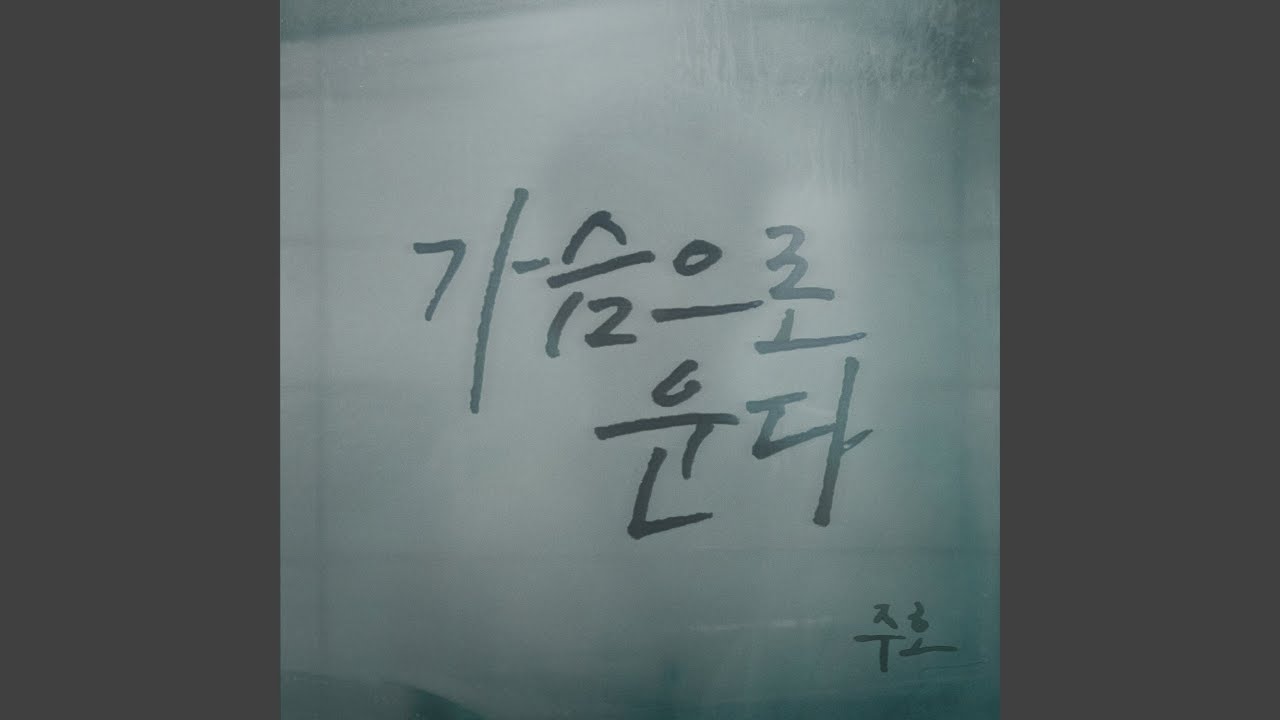 가슴으로
운다
주호